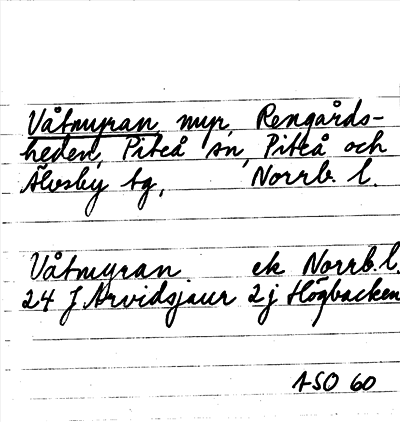 Våtmyran myr, Rengårds-
heden, Piteå sn, Piteå och
Älvsby tg, Norrb. l.
Våtmyran ek Norrb. l.
24 J Arvidsjaur 2 j Högbacken
ASO 60